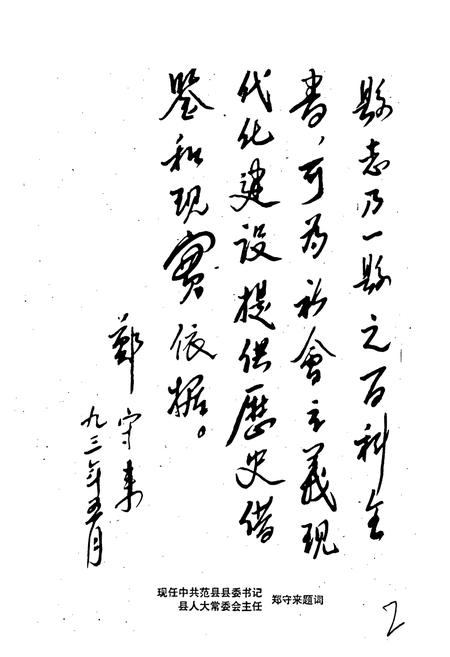 縣志乃一縣之百科全
書，可为社會主義现
代化建设提供歷史借
鉴和现實依据。
鄭守来
九三年五月
现任中共范县县委书记
县人大常委会主任
郑守来题词
2